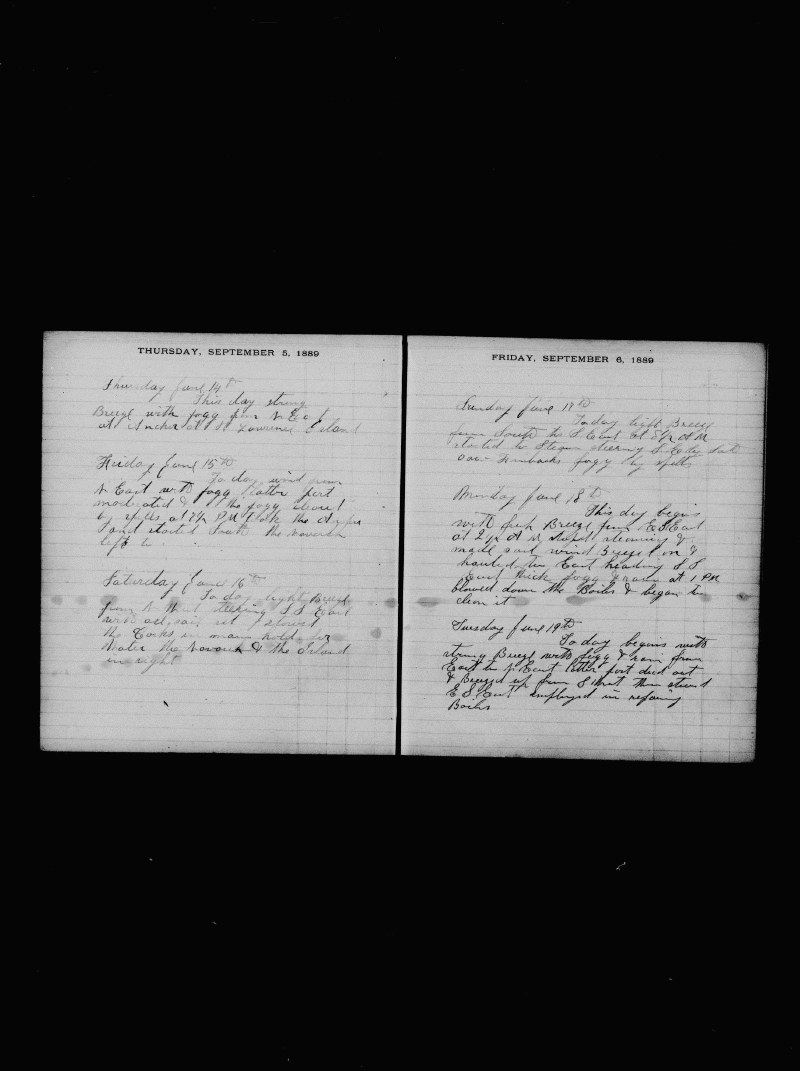 THURSDAY, SEPTEMBER 5, 1889
Thursday June 14th
This day strong
Breeze with fogg from N East
at Anchor at St Lawrence Island
Friday June 15th
To day wind from
N East with fogg latter part
moderated & the fogg
by spells at 7½ P.M. took the
and started South the
left
Saturday June 16th
To day light Breeze
from N West steering S S East
with all sail set
the Casks in main hold for
Water the & the Island
in sight
FRIDAY, SEPTEMBER 6, 1889
Sunday June 17th
To day light Breeze
from South to S East at A M
started to Steam steering S
saw finbacks fogy by spells
Monday June 18th
This day begins
with fresh Breeze from E S East
at 2 A M stopd steaming &
made sail wind Breezed on &
hauled to East heading S S
East thick fogg & rain at 1 PM
blowed down the Boiler & began to
clean it
Tuesday June 19th
To day begins with
strong Breeze with fogg & rain from
East to East latter part died out
& Breezed up from S West then steerd
E S East employed in repairing
Boiler